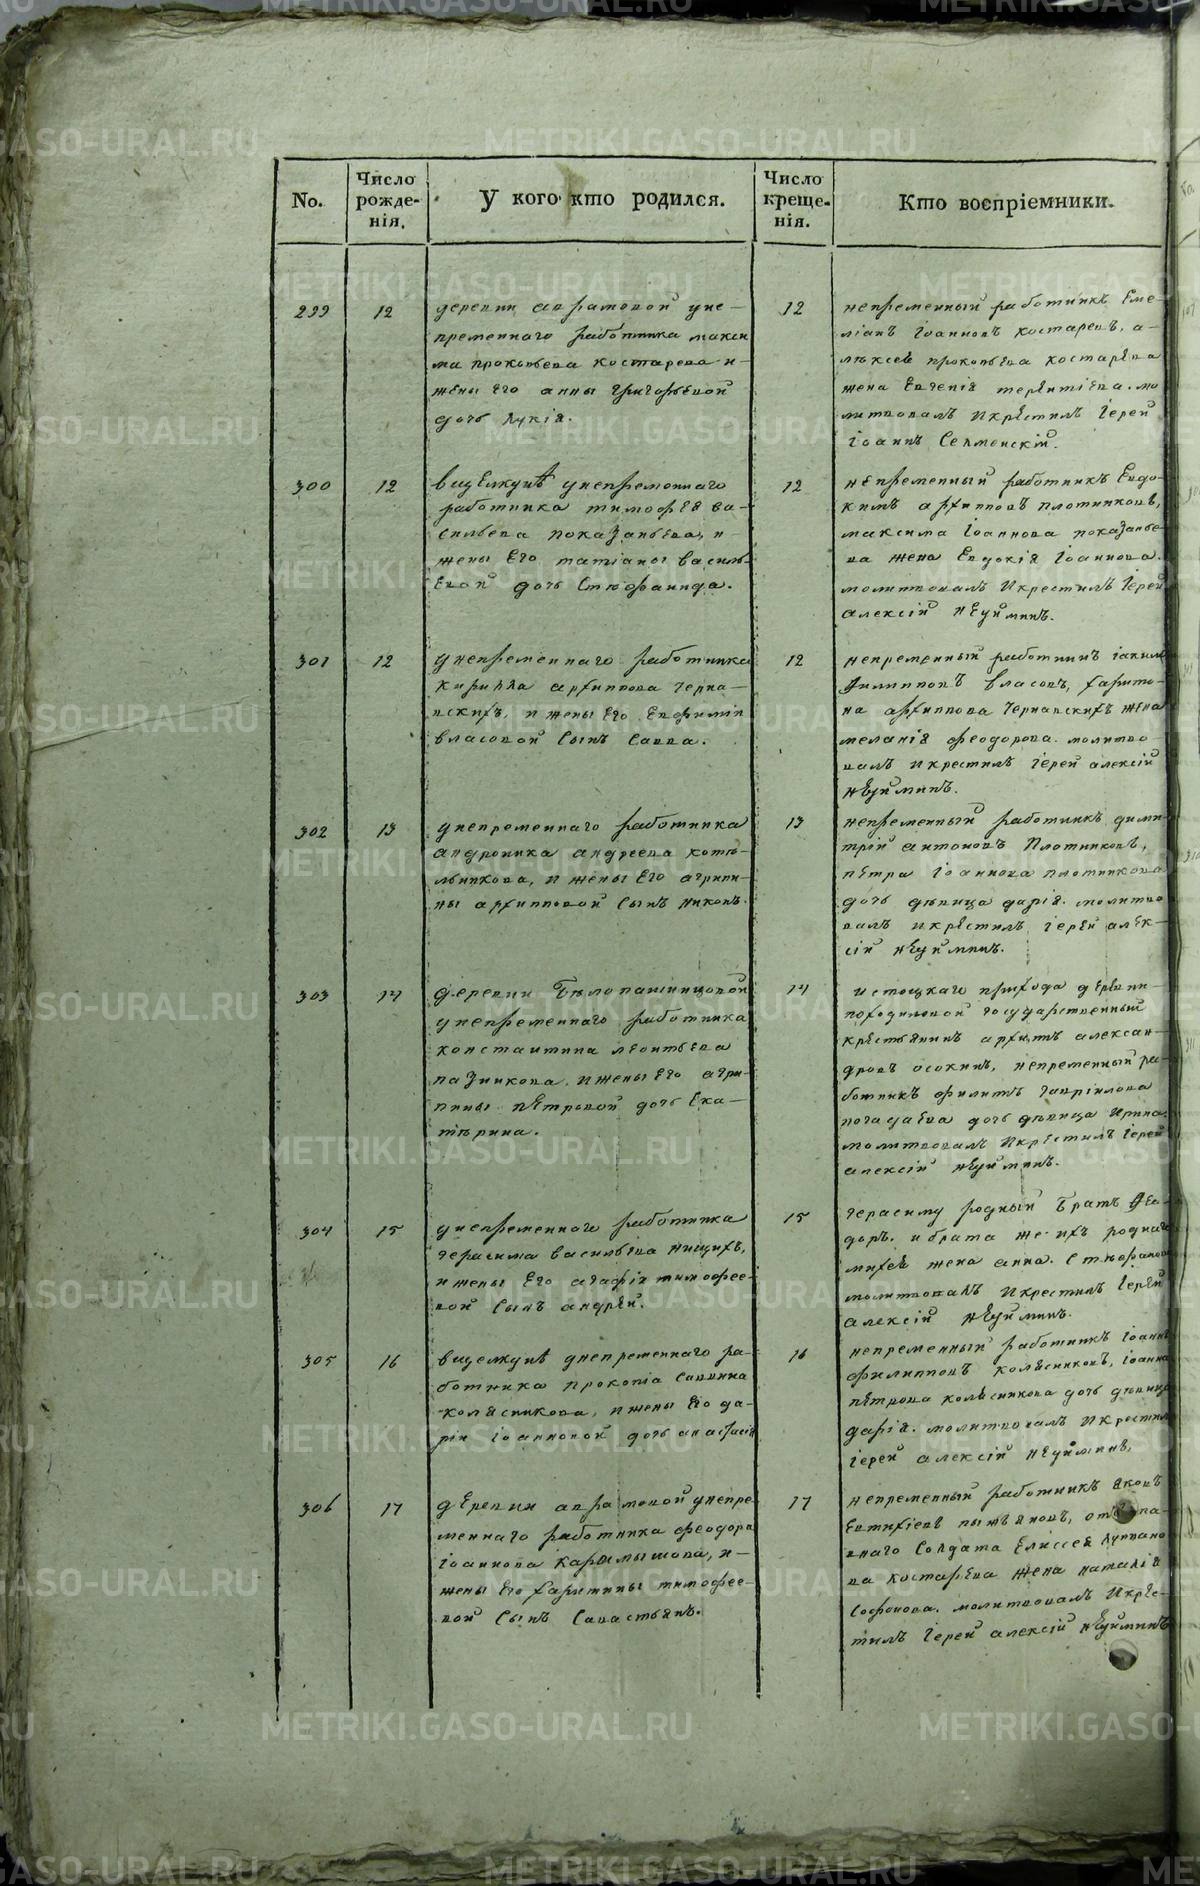 No.
Число рожденія.
У кого кто родился.
Число крещенія.
Кто воспріемники.
299
12
деревни аврамовой уне-
пременнаго работника макси
ма прокопьева костарева и
жены его анны григорьевой
дочь лукія.
12
непременный работникъ Еме-
ліанъ іоанновъ костаревъ, а-
лѣксея прокопьева костарева
жена Евгенія терентіева. мо
литвовалъ и крестилъ іерей
іоаннъ Селменскій.
300
12
вицѣлкунѣ унепременнаго
работника тимофея ва-
сильева показаньева, и
жены его татіаны василь
евой дочь Стефанида.
12
непременный работникъ Евдо-
кимъ архиповъ плотниковъ,
максима іоаннова показанье
ва жена Евдокія іоаннова.
молитвовалъ и крестилъ іерей
алексій неуйминъ.
301
12
унепременнаго работника
кирилла архиппова черна-
вскихъ, и жены его Евфиміи
власовой сынъ Савва.
12
непременный работникъ іакимъ
Филипповъ власовъ, харито-
на архиппова чернавскихъ жена
меланія феодорова. молитво
валъ и крестилъ іерей алексій
неуйминъ.
302
13
унепременнаго работника
андроника андреева котѣ-
льникова, и жены его агрипи-
ны архипповой сынъ никонъ.
13
непременный работникъ дими-
трій антоновъ плотниковъ,
петра іоаннова плотникова
дочь дѣвица дарія. молитво
валъ и крестилъ іерей алек-
сій неуйминъ.
303
14
деревни Бѣлопашинцовой
унепременнаго работника
константина леонтьева
пазникова, и жены его агри-
пины петровой дочь Ека-
терина.
14
истоцкаго прихода деревни
походиловой государственный
крестьянинъ архипъ алексан-
дровъ осокинъ, непременный ра-
ботникъ филипъ гавріилова
погадаева дочь дѣвица ирина.
молитвовалъ и крестилъ іерей
алексій неуйминъ.
304
15
унепременнаго работника
герасима васильева нищихъ,
и жены его агафіи тимофее-
вой сынъ андрей.
15
герасиму родный братъ Фео-
доръ. и брата же ихъ роднаго
михея жена анна. Стефанова
молитвовалъ и крестилъ іерей
алексій неуйминъ.
305
16
вицелкунѣ унепременнаго ра-
ботника прокопія саввина
колясникова, и жены его да-
ріи іоанновой дочь анастасія
16
непременный работникъ іоаннъ
филипповъ колясниковъ, іоанна
петрова колясникова дочь дѣвица
дарія. молитвовалъ и крестилъ
іерей алексій неуйминъ.
306
17
деревни аврамовой унепре
меннаго работника феодора
іоаннова карымышова, и
жены его харитины тимофее-
вой сынъ Савастьянъ.
17
непременный работникъ яковъ
Евтихіевъ пыжьяновъ,
внаго Солдата Елиссея
ва костарева жена наталія
Софонова. молитвовалъ и крес-
тилъ іерей алексій неуйминъ